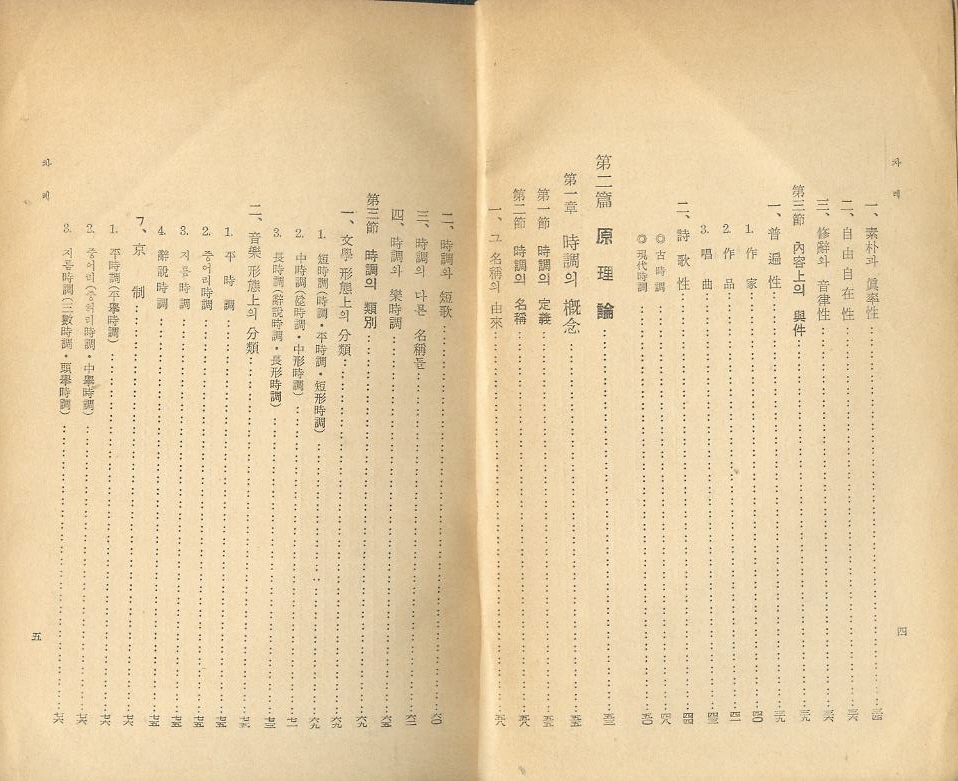 차 례
一、素朴과 眞率性 三四
二、自由自在性 三六
三、修辭와 音律性 三六
第三節 內容上의 與件 三九
一、普遍性 三九
1. 作家 四〇
2. 作品 四一
3. 唱曲 四四
二、詩歌性 四四
◎古時調 四八
◎現代時調 五〇
第二篇 原理論
第一章 時調의 槪念 五五
第一節 時調의 定義 五五
第二節 時調의 名稱 五八
一、그 名稱의 由來 五八
四
차 례
二、時調와 短歌 六〇
三、時調의 다른 名稱들 六二
四、時調와 樂時調 六五
第三節 時調의 類別 六九
一、文學 形態上의 分類 六九
1. 短時調(時調・平時調・短形時調) 六九
2. 中時調(엇時調・中形時調)
3. 長時調(辭說時調・長形時調) 七三
二、音樂 形態上의 分類
1. 平時調 七五
2. 중어리時調 七五
3. 지름時調 七五
4. 辭說時調 七五
ㄱ、京制 七六
1. 平時調(平擧時調) 七六
2. 중어리(중허리時調・中擧時調) 七六
3. 지름時調(三數時調・頭擧時調) 七六
五